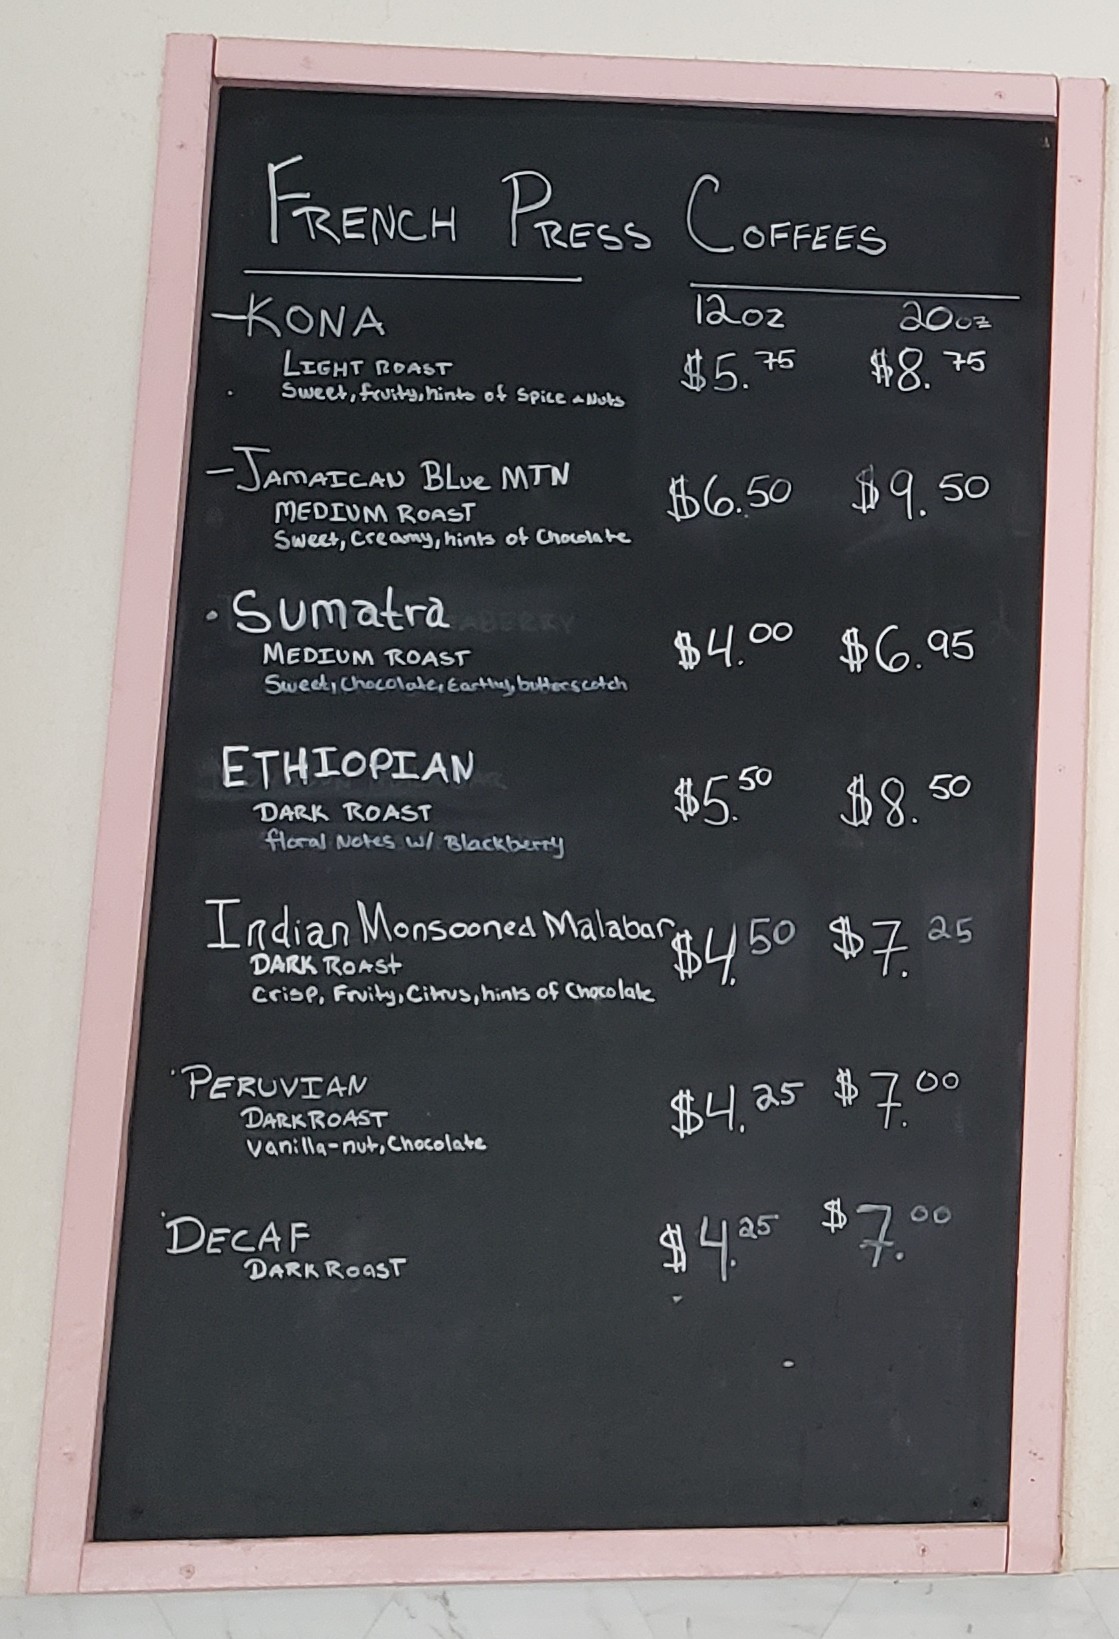 FRENCH PRESS COFFEES
-KONA 12oz 20oz
LIGHT ROAST $5.75 $8.75
Sweet, fruity, hints of Spice & Nuts
-JAMAICAN BLue MTN $6.50 $9.50
MEDIUM ROAST
Sweet, Creamy, hints of Chocolate
·Sumatra $4.00 $6.95
MEDIUM ROAST
Sweet, Chocolate, Earthy, butterscotch
ETHIOPIAN $5.50 $8.50
DARK ROAST
floral Notes w/ Blackberry
Indian Monsooned Malabar $4.50 $7.25
DARK ROAST
Crisp, Fruity, Citrus, hints of Chocolate
·PERUVIAN $4.25 $7.00
DARK ROAST
Vanilla-nut, Chocolate
·DECAF $4.25 $7.00
DARK ROAST